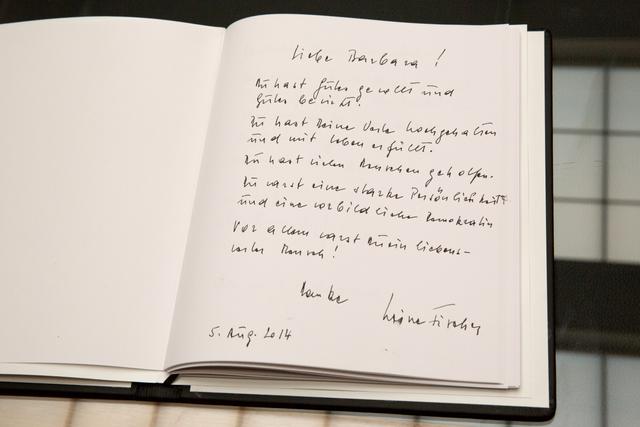 Liebe Barbara!
Du hast Gutes gewollt und
Gutes bewirkt.
Du hast Deine Werte hochgehalten
und mit Leben erfüllt.
Du hast vielen Menschen geholfen.
Du warst eine starke Persönlichkeit
und eine vorbildliche Demokratin
Vor allem warst Du ein liebens-
werter Mensch!
Danke Heinz Fischer
5. Aug. 2014